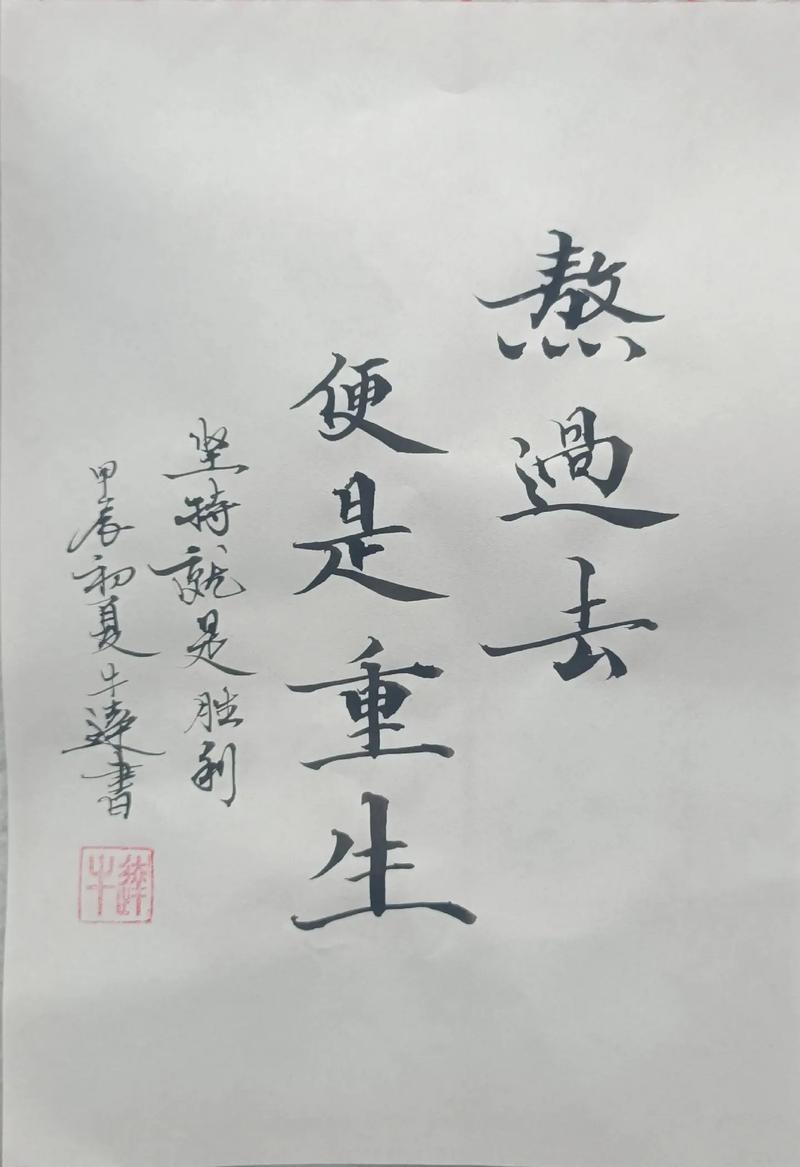 熬過去
便是重生
坚持就是胜利
甲辰初夏牛達書
牛達